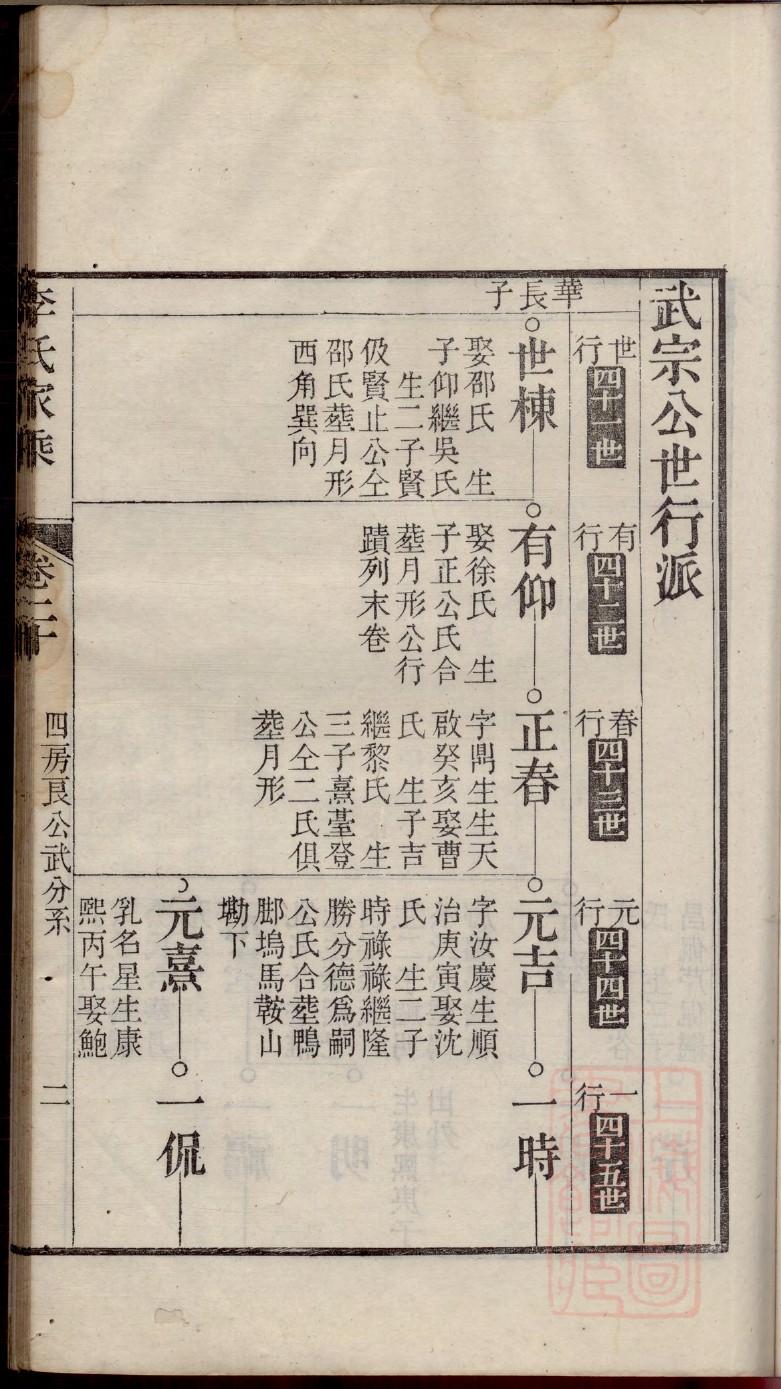 武宗公世行派
世行四十一世
有行四十二世
春行四十三世
元行四十四世
一行四十五世
華長子
世棟
娶邵氏 生
子仰繼吳氏
生二子賢
伋賢止公仝
邵氏塟月形
西角巽向
有仰
娶徐氏 生
子正公氏合
塟月形公行
蹟列末卷
正春
字鼎生生天
啟癸亥娶曹
氏 生子吉
繼黎氏 生
三子熹䑓登
公仝二氏俱
塟月形
元吉
字汝慶生順
治庚寅娶沈
氏 生二子
時祿祿繼隆
勝分德爲嗣
公氏合塟鴨
脚塢馬鞍山
墈下
一時
元熹
乳名星生康
熙丙午娶鮑
一侃
李氏家乘
卷二十
四房良公武分系
二